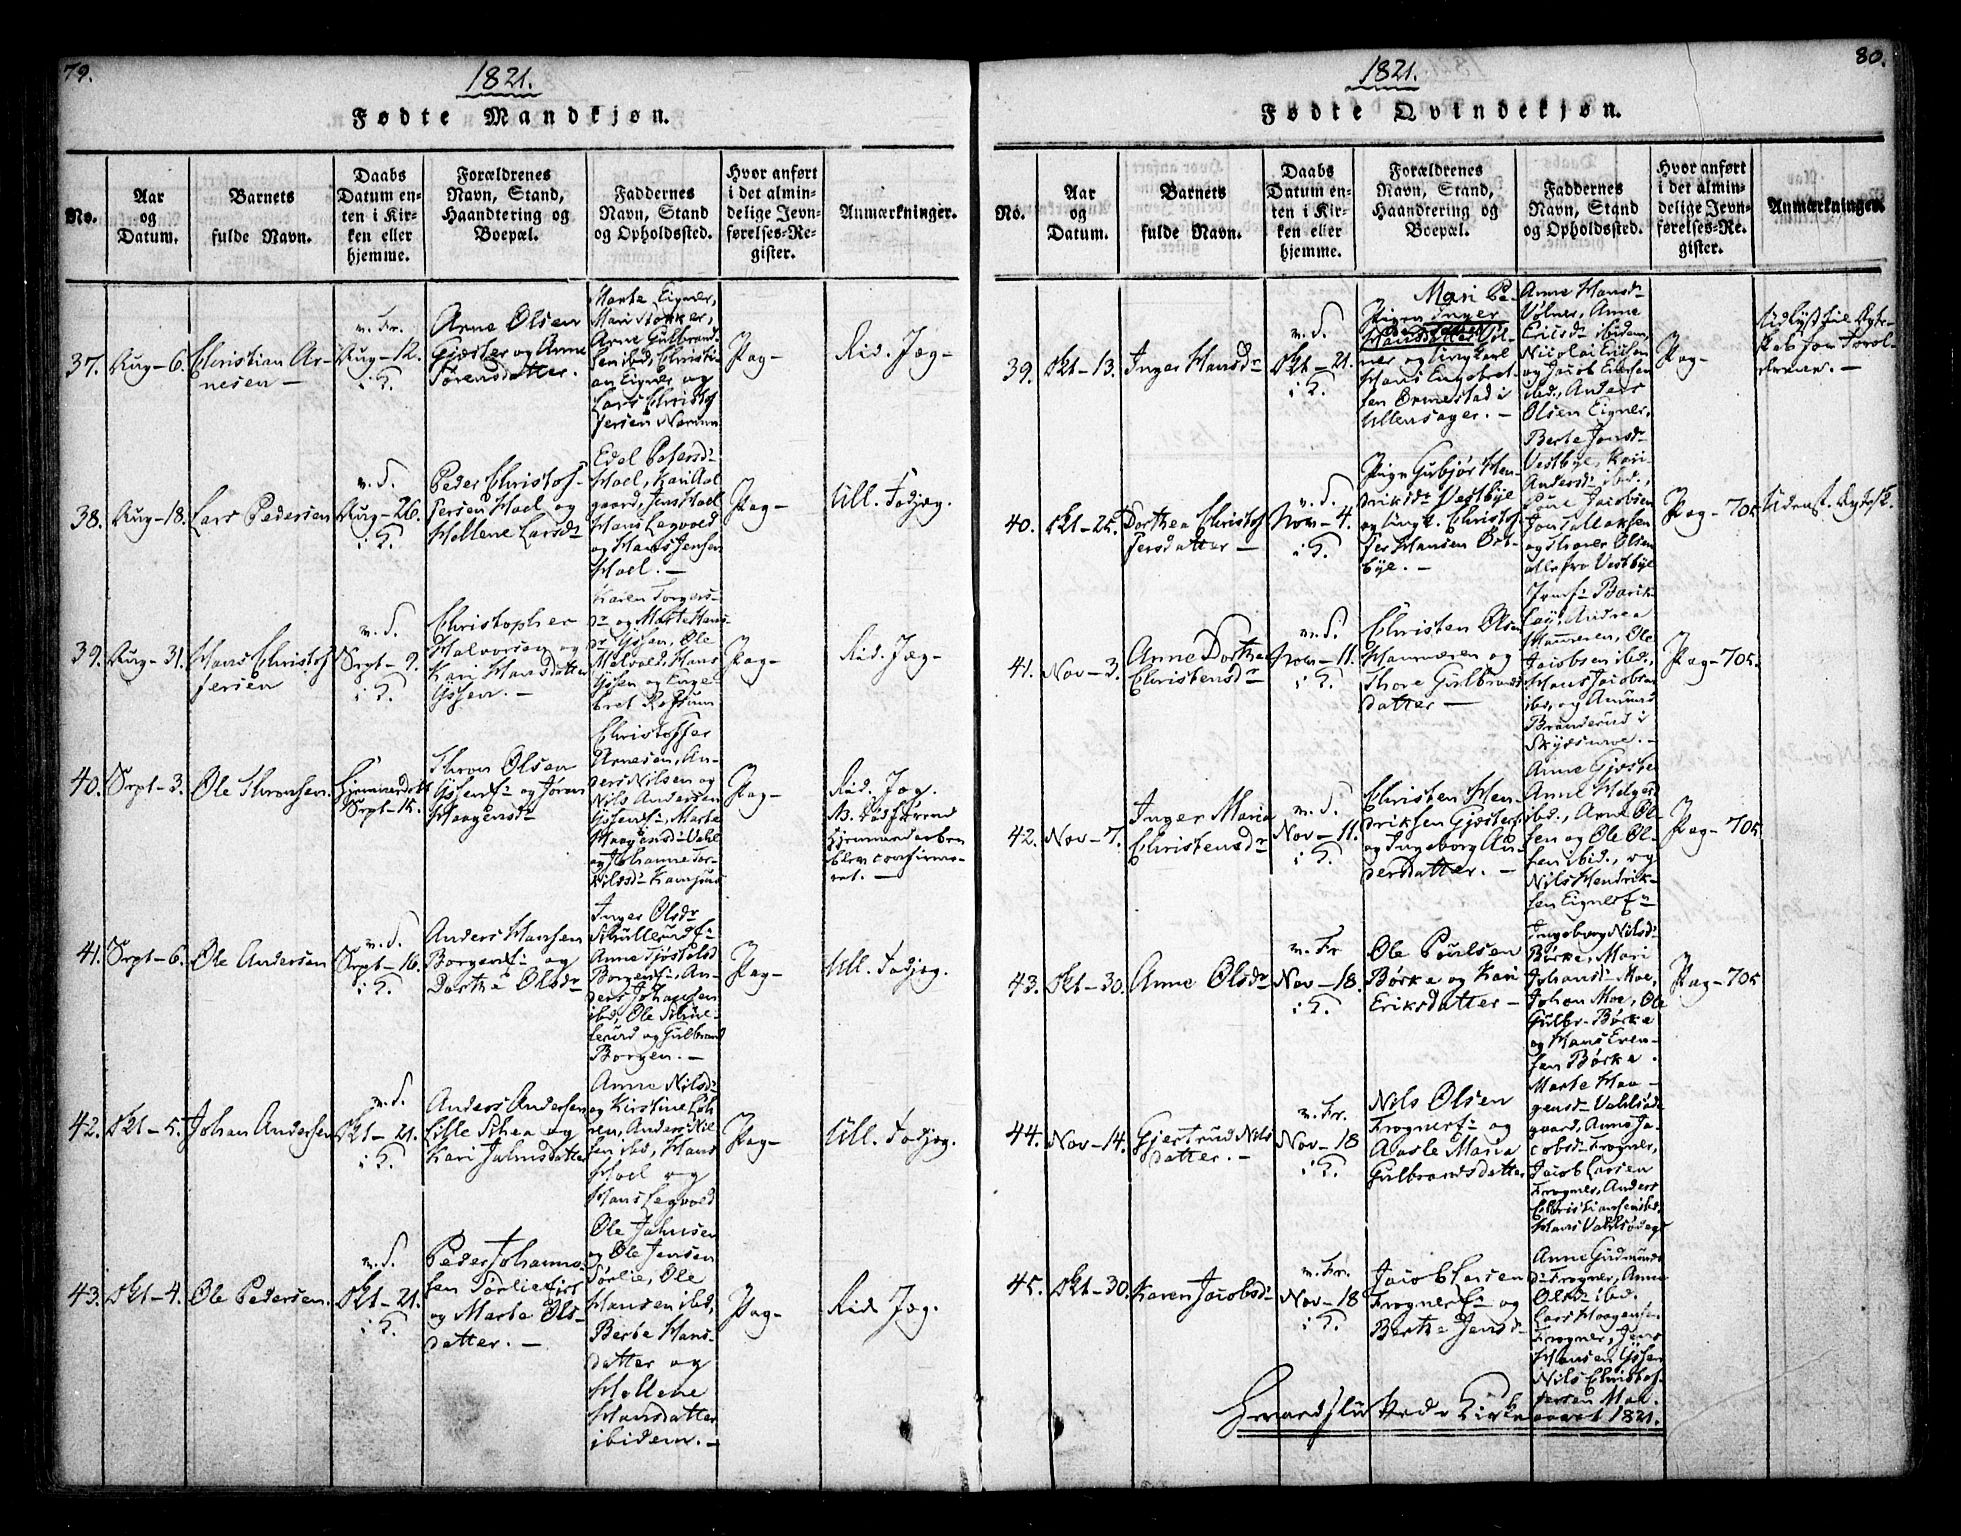 79.
1821.
Fødte Mandkjøn.
No.
Aar
og
Datum.
Barnets
fulde Navn.
Daabs
Datum en-
ten i Kir-
ken eller
hjemme.
Forældrenes
Navn, Stand,
Haandtering og
Boepæl.
Faddernes
Navn, Stand
og Opholdssted.
Hvor anført
i det almin-
delige Jevn-
førelses-Re-
gister.
Anmærkninger.
37. Aug-6.
Christian Ar-
nesen —
v. Fr.
Aug-12.
i K.
Arne Olsen
Gjøster og Anne
Sørensdatter.
Marte Eigner,
Mari
Arne Gulbrand-
sen ibid, Christi-
an Eigner og
Lars Christof
fersen Narum
Pag-
Rid. Jæg-
38. Aug-18.
Lars Pedersen
v. S.
Aug-26.
i K.
Peder Christof-
fersen Hoel og
Hellene Larsdr
Edel Pedersdr
Hoel, Kari Aal-
gaard, Jens Hoel
Hans Legvold
og Hans Jensen
Hoel. —
Pag-
Ull. Fodjæg.
39. Aug-31.
Hans Christof
fersen
v. S.
Sept-9.
i K.
Christopher
Halvorsen og
Kari Hansdatter
Gjssen. —
Karen Torgers-
dr og Marte Hans-
dr Gjssen, Ole
Melvold, Hans
Gjssen og Enge-
bret Refsum
Pag-
Rid. Jæg-
40. Sept-3.
Ole Thronsen.
Hjemmedøbt
Sept-15.
Thron Olsen
og Jøran
Haagensdr
Christoffer
Arnesen, An-
ders Nilsen og
Nils Andersen
Marte
Haagensdr Vahl
og Johanne Tor-
kildsdr
Pag-
Rid. Jæg.
Hjemmedaaben
blev confirme-
ret. —
41. Sept-6.
Ole Andersen
v. S.
Sept-16.
i K.
Anders Hansen
Borgen og
Dorthe Olsdr
Inger Olsdr
Skullerud
Anne
Borgen, An-
ders Johansen
ibd, Ole Skul-
lerud og Gulbrand
Borgen. —
Pag-
Ull. Fodjæg.
42. Okt-5.
Johan Andersen
v. S.
Okt-21.
i K.
Anders Andersen
Lille Schea og
Kari Jahnsdatter
Anne Nilsdr
og Kirstine Løh-
ren, Anders Nil-
sen ibd, Hans
Hoel og
Hans Legvold
Pag-
Ull. Fodjæg.
43. Okt-4.
Ole Pedersen.
v. S.
Okt-21.
i K.
Peder Johanne-
sen Sørlie
og Marte Ols-
datter. —
Ole Jahnsen
og Ole Jensen
Sørlie, Ole
Hansen ibd,
Berte Hans-
datter og
Hellene
Hansdatter
ibidem. —
Pag-
Rid. Jæg.
80.
1821.
Fødte Qvindekjøn.
No.
Aar
og
Datum.
Barnets
fulde Navn.
Daabs
Datum en-
ten i Kir-
ken eller
hjemme.
Forældrenes
Navn, Stand,
Haandtering og
Boepæl.
Faddernes
Navn, Stand
og Opholdssted.
Hvor anført
i det almin-
delige Jevn-
førelses-Re-
gister.
Anmærkninger.
39. Okt-13.
Inger Hansdr
v. S.
Okt-21.
i K.
Mari Pe-
Pigen Inger
Hansdatter Vol-
ner og Ungkarl
Hans Engebret
sen Ormestad i
Ullensager. —
Anne Hansdr
Volner, Anne
Ericsdr ibidem,
Nicolai Ericsen
og Jacob Ericsen
ibd., Anders
Olsen Eigner.
Pag-
40. Okt-25.
Dorthea Christof
fersdatter —
v. S.
Nov-4.
i K.
Pige Gubjør Hen-
driksdr Vestbye
og Ungk. Christof
fer Hansen Øst-
bye. —
Berte Jonsdr
Vestbye, Kari
Andersdr ibd.,
Jacobsen
Jon Tollaksen
og Thorer Olsen
alle fra Vestbye
Pag-705
41. Nov-3.
Anne Dorthea
Christensdr
v. S.
Nov-11.
i K.
Christen Olsen
Hammeren og
Thore Gulbrands
datter —
Andrea
Hammeren, Ole
Jacobsen ibd.,
Hans Jacobsen
ibd. og Amund
Branderud i
Pag-705.
42. Nov-7.
Inger Maria
Christensdr
v. S.
Nov-11.
i K.
Christen Hen-
driksen Gjøster
og Ingeborg An-
dersdatter. —
Anne Gjøster
Anne Helgesdr
ibd., Arne Ol-
sen og Ole Ol-
sen ibid., og
Nils Hendrik-
sen Eigner
Pag-705
43. Okt-30.
Anne Olsdr
v. Fr
Nov-18.
i K.
Ole Poulsen
Børke og Kari
Eriksdatter —
Ingeborg Nilsdr
Børke, Mari
Johansdr Moe,
Johan Moe, Ole
Gulbr. Børke
og Hans Even-
sen Børke.
Pag-705
44. Nov-14.
Gjertrud Nils
datter. —
v. Fr.
Nov-18
i K.
Nils Olsen
Frogner og
Aasle Maria
Gulbrandsdatter
Marte Haa-
gensdr Vahlsøde
gaard, Anne Ja-
cobsdr Frogner,
Jacob Larsen
Frogner, Anders
Christiansen ibd.
Hans Vahlsødeg
45. Okt-30.
Karen Jacobsdr
v. Fr.
Nov-18
i K.
Jacob Larsen
Frogner og
Berthe Jensdr
Anne Gudmunds
dr Frogner, Anne
Olsdr ibd.
Lars Haagensen
Frogner, Jens
Hansen Gjssen
Nils Christof-
fersen Moe.
Kirke aaret 1821.